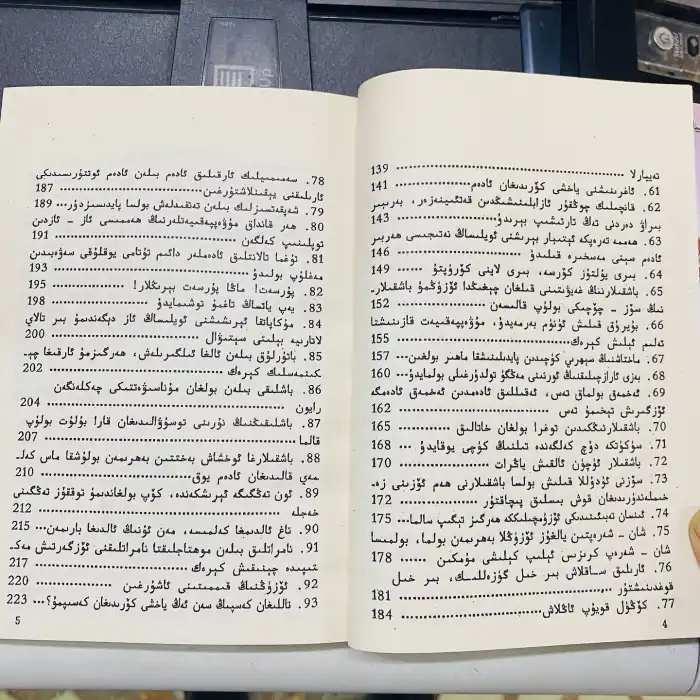 تەييارلا ............ 139
61. ئاغرىنىشنى ياخشى كۆرىدىغان ئادەم ............ 141
62. قانچىلىك چوڭقۇر ئازابلىنىشىڭدىن قەتئىينەزەر، بەرىبىر
بىراۋ دەردنى تەڭ تارتىشىپ بېرىدۇ ............ 143
63. ھەممە تەرەپكە ئېتىبار بېرىشنى ئويلىساڭ نەتىجىسى ھەربىر
ئادەم سېنى مەسخىرە قىلىدۇ ............ 146
64. بىرى يۇلتۇز كۆرسە، بىرى لاينى كۆرۈپتۇ ............ 149
65. باشقىلارنىڭ غەيۋىتىنى قىلغان چېغىڭدا ئۆزۈڭمۇ باشقىلار-
نىڭ سۆز - چۆچىكى بولۇپ قالىسەن ............ 152
66. بۇيرۇق قىلىش ئۈنۈم بەرمەيدۇ، مۇۋەپپەقىيەت قازىنىشتا
تەلىم ئېلىش كېرەك ............ 155
67. ماختاشنىڭ سېھرىي كۈچىدىن پايدىلىنىشقا ماھىر بولغىن... 157
68. بەزى ئارازچىلىقنىڭ ئورنىنى مەڭگۈ تولدۇرغىلى بولمايدۇ... 160
69. ئەخمەق بولماق تەس، ئەقىللىق ئادەمدىن ئەخمەق ئادەمگە
ئۆزگىرىش تېخىمۇ تەس ............ 162
70. باشقىلارنىڭكىدىن توغرا بولغان خاتالىق ............ 165
71. سۈكۈتكە دۇچ كەلگەندە تىلنىڭ كۈچى يوقايدۇ ... 168
72. باشقىلار ئۈچۈن ئالقىش ياڭرات ............ 170
73. سۆزنى ئۇدۇللا قىلىش بولسا باشقىلارنى ھەم ئۆزىنى زە-
خىملەندۈرىدىغان قوش بىسلىق پىچاقتۇر ............ 172
74. ئىنسان تەبىئىتىدىكى ئۆزۈمچىلىككە ھەرگىز تېگىپ سالما... 175
75. شان - شەرەپتىن يالغۇز ئۆزۈڭلا بەھرىمەن بولما، بولمىسا
شان - شەرەپ كرىزىس ئېلىپ كېلىشى مۇمكىن ............ 178
76. ئارىلىق ساقلاش بىر خىل گۈزەللىك، بىر خىل
قوغدىنىشتۇر ............ 181
77. كۆڭۈل قويۇپ ئاڭلاش ............ 184
4
78. سەمىمىيلىك ئارقىلىق ئادەم بىلەن ئادەم ئوتتۇرىسىدىكى
ئارىلىقنى يېقىنلاشتۇرغىن ............ 187
79. شەپقەتسىزلىك بىلەن تەنقىدلەش بولسا پايدىسىزدۇر... 189
80. ھەر قانداق مۇۋەپپەقىيەتلەرنىڭ ھەممىسى ئاز - ئازدىن
توپلىنىپ كەلگەن ............ 191
81. تۇغما تالانتلىق ئادەملەر دائىم تۇتامى يوقلۇقى سەۋەبىدىن
مەغلۇپ بولىدۇ ............ 193
82. پۇرسەت! ماڭا پۇرسەت بېرىڭلار! ............ 195
83. يەپ ياتساڭ تاغمۇ توشىمايدۇ ............ 198
84. مۇكاپاتقا ئېرىشىشنى ئويلىساڭ ئاز دېگەندىمۇ بىر تالاي
لاتارىيە بېلىتى سېتىۋال ............ 200
85. باتۇرلۇق بىلەن ئالغا ئىلگىرىلەش، ھەرگىزمۇ ئارقىغا چې-
كىنمەسلىك كېرەك ............ 202
86. باشلىقى بىلەن بولغان مۇناسىۋەتتىكى چەكلەنگەن
رايون ............ 204
87. باشلىقىڭنىڭ نۇرىنى توسۇۋالىدىغان قارا بۇلۇت بولۇپ
قالما ............ 207
88. باشقىلارغا ئوخشاش بەختتىن بەھرىمەن بولۇشقا ماس كەل-
مەي قالىدىغان ئادەم يوق ............ 210
89. ئون تەڭگىگە ئېرىشكەندە، كۆپ بولغاندىمۇ توققۇز تەڭگىنى
خەجلە ............ 212
90. تاغ ئالدىمغا كەلمىسە، مەن ئۇنىڭ ئالدىغا بارىمەن... 215
91. نامراتلىق بىلەن موھتاجلىقتا نامراتلىقنى ئۆزگەرتىش مەك-
تىپىدە چېنىقىش كېرەك ............ 217
92. ئۆزۈڭنىڭ قىممىتىنى ئاشۇرغىن ............ 220
93. تاللىغان كەسپىڭ سەن ئەڭ ياخشى كۆرىدىغان كەسىپمۇ؟... 223
5